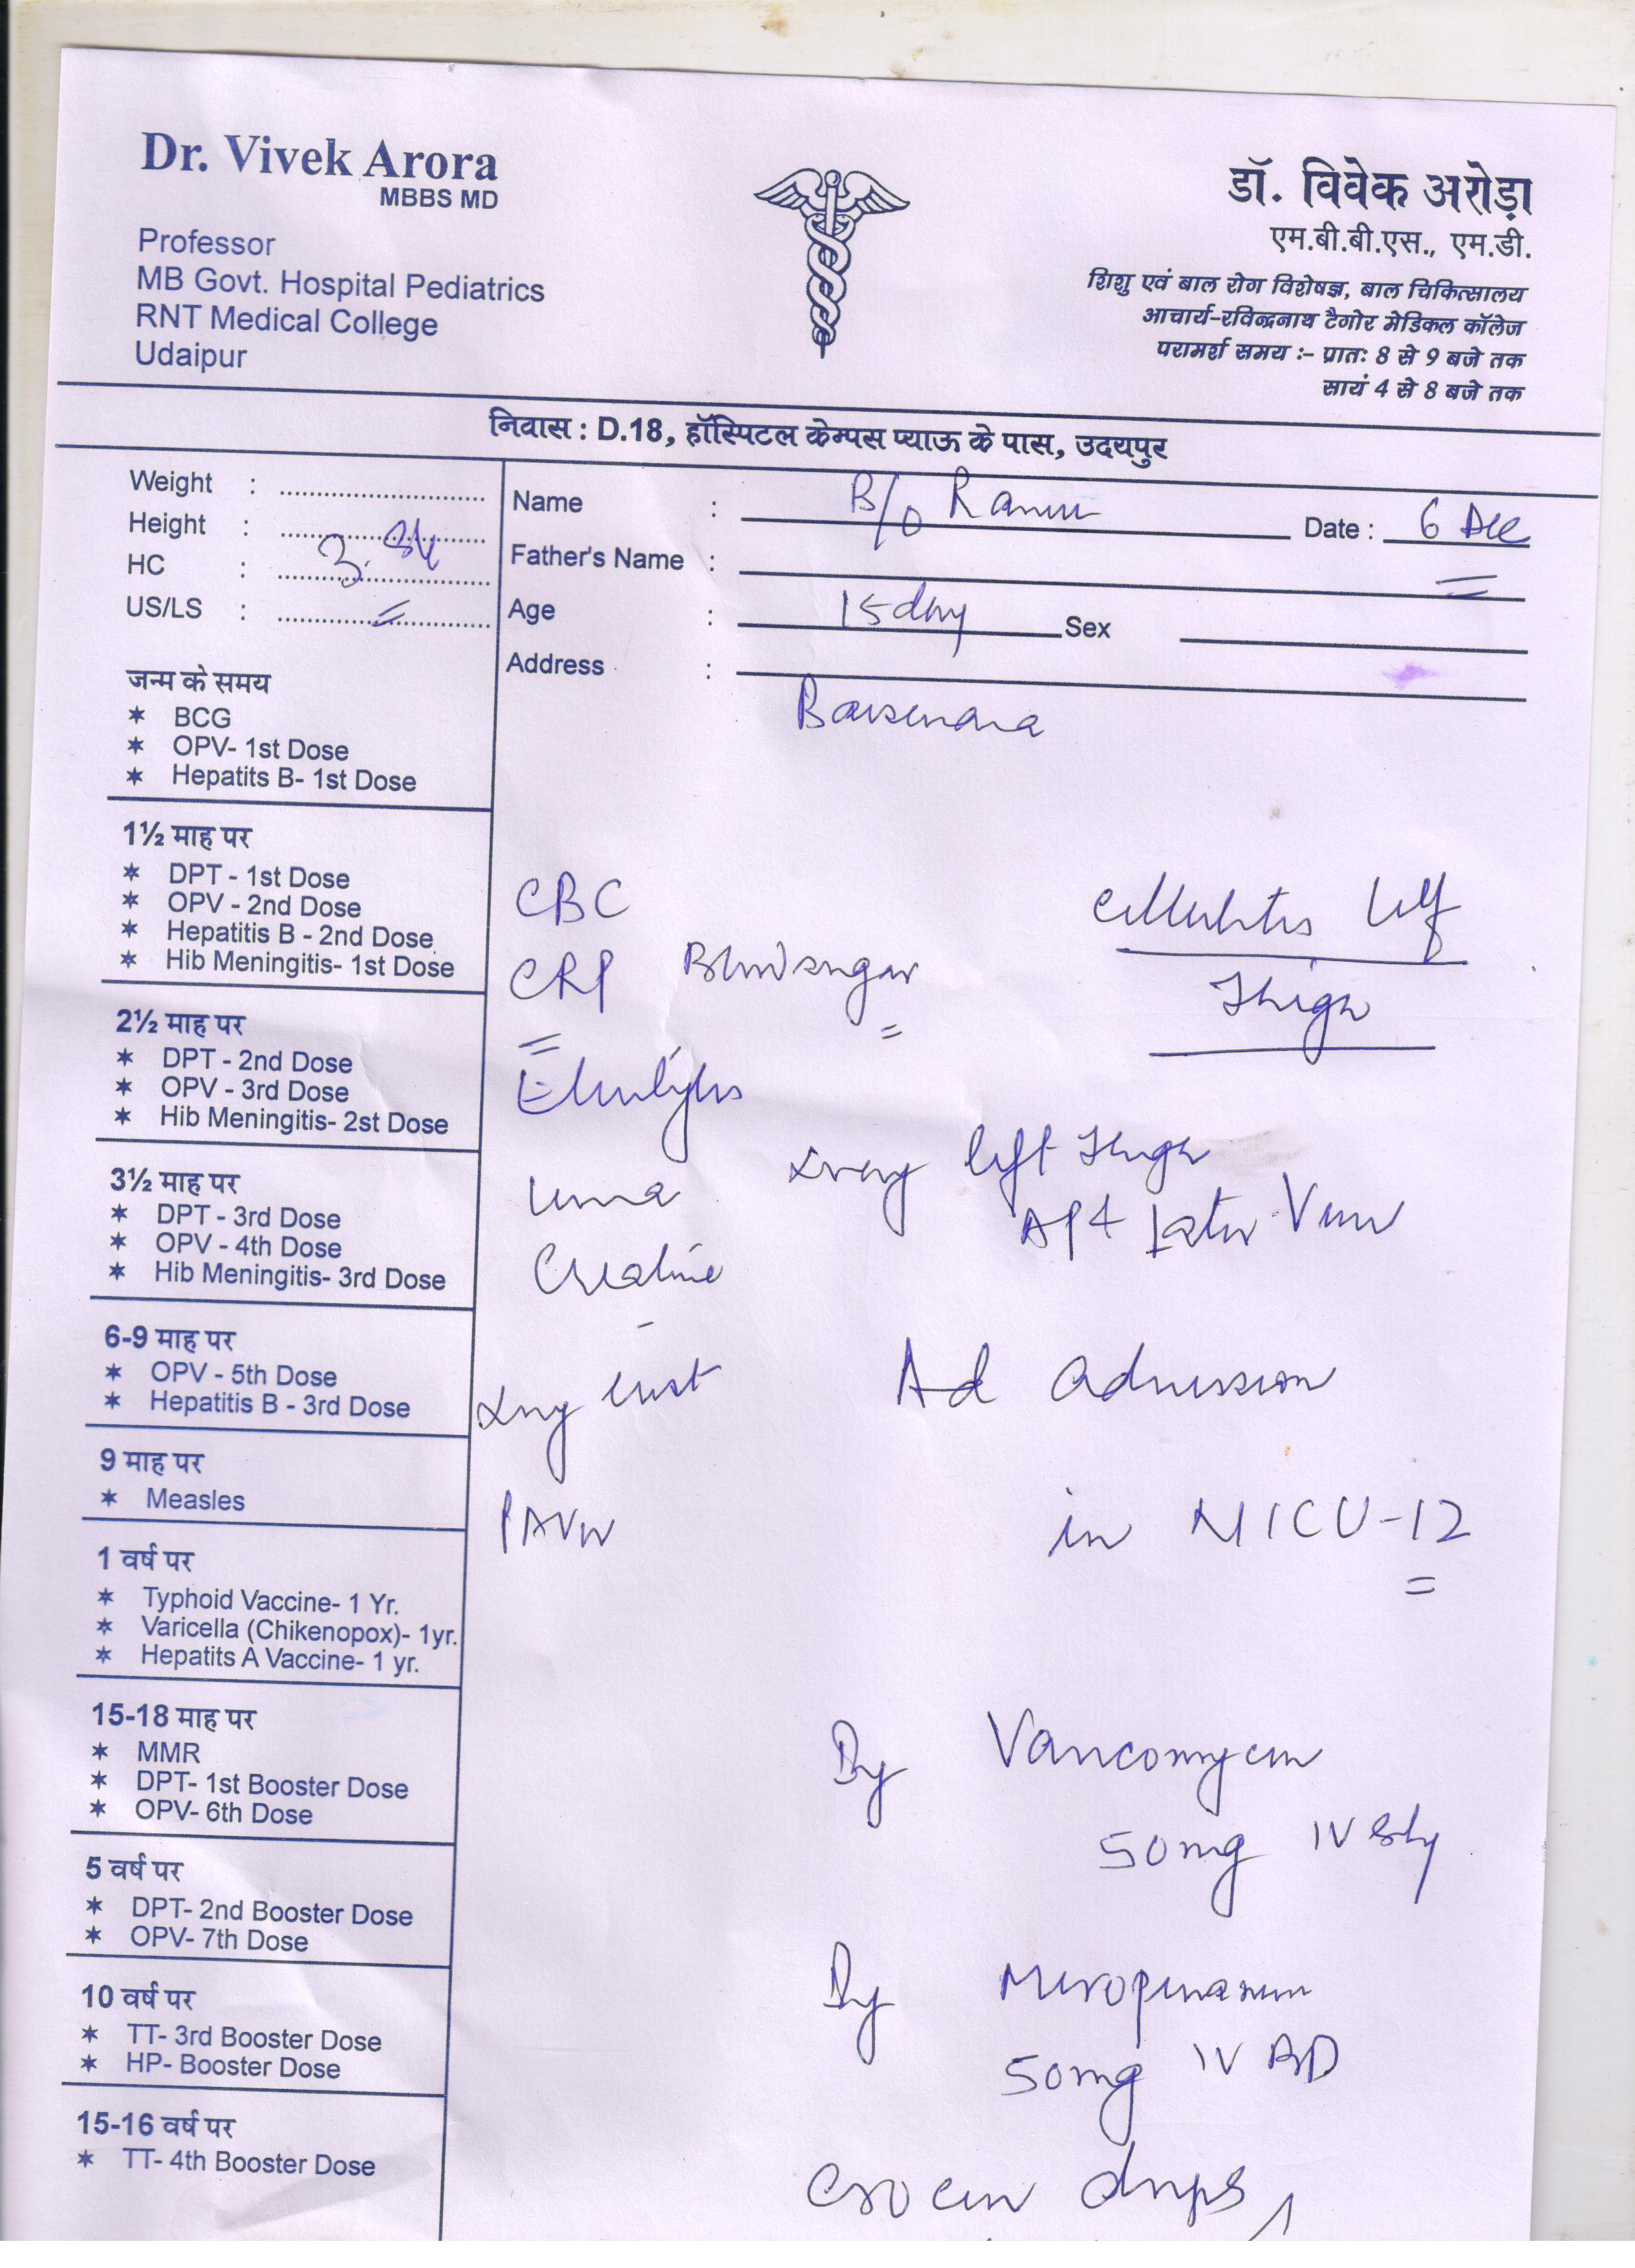 Dr. Vivek Arora
MBBS MD
Professor
MB Govt. Hospital Pediatrics
RNT Medical College
Udaipur
डॉ. विवेक अरोड़ा
एम.बी.बी.एस., एम.डी.
शिशु एवं बाल रोग विशेषज्ञ, बाल चिकित्सालय
आचार्य-रविन्द्रनाथ टैगोर मेडिकल कॉलेज
परामर्श समय :- प्रातः 8 से 9 बजे तक
सायं 4 से 8 बजे तक
निवास : D.18, हॉस्पिटल केम्पस प्याऊ के पास, उदयपुर
Weight :
Height :
HC :
US/LS :
Name : B/o Date : 6 Dec
Father's Name :
Age : 15 day Sex
Address :
जन्म के समय
* BCG
* OPV- 1st Dose
* Hepatits B- 1st Dose
1½ माह पर
* DPT - 1st Dose
* OPV - 2nd Dose
* Hepatitis B - 2nd Dose
* Hib Meningitis- 1st Dose
2½ माह पर
* DPT - 2nd Dose
* OPV - 3rd Dose
* Hib Meningitis- 2st Dose
3½ माह पर
* DPT - 3rd Dose
* OPV - 4th Dose
* Hib Meningitis- 3rd Dose
6-9 माह पर
* OPV - 5th Dose
* Hepatitis B - 3rd Dose
9 माह पर
* Measles
1 वर्ष पर
* Typhoid Vaccine- 1 Yr.
* Varicella (Chikenopox)- 1yr.
* Hepatits A Vaccine- 1 yr.
15-18 माह पर
* MMR
* DPT- 1st Booster Dose
* OPV- 6th Dose
5 वर्ष पर
* DPT- 2nd Booster Dose
* OPV- 7th Dose
10 वर्ष पर
* TT- 3rd Booster Dose
* HP- Booster Dose
15-16 वर्ष पर
* TT- 4th Booster Dose
CBC
Cellulitis left
CRP Blood sugar
Thigh
Xray left Thigh
AP + Later View
Ad admission
in NICU-12
Vancomycin
50mg IV
Meropenam
50mg IV BD
Crocin drops